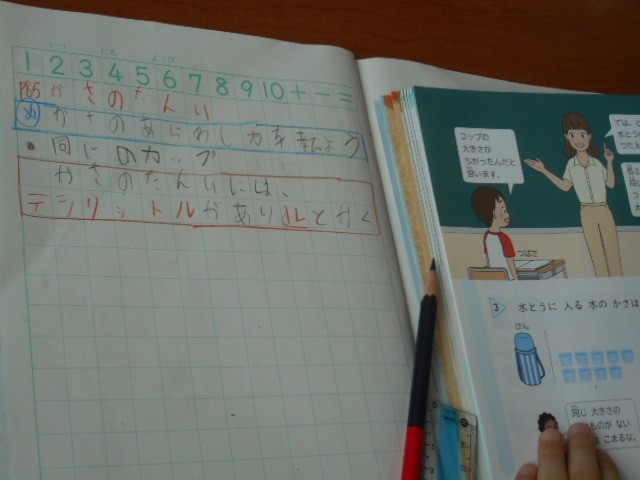 がつ にち ようび
1 2 3 4 5 6 7 8 9 10 + - =
P85 かさのたんい
め かさのあらわし方を
・同じのカップ
かさのたんいには、
デシリットルがあり dLとかく
コップの
大きさが
ちがったんだと
思います。
では、
水とう
つたえ
つばさ
3 水とうに 入る 水の かさは
けん
同じ 大きさの
ものが ない
こまるな。